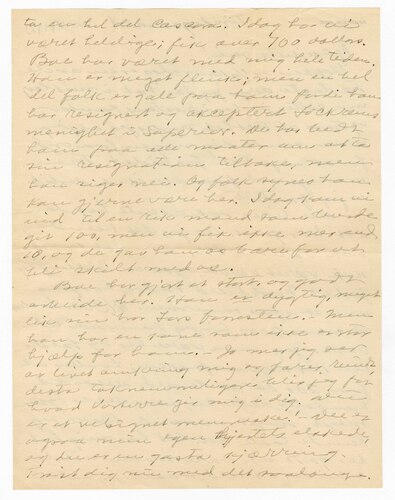 ta en hel del . I dag har vi
været heldige; fik over 700 dollars.
Boe har været med mig hele tiden.
Han er meget flink; men en hel
del folk er gale paa ham fordi han
har resignert og akceptert
menighet i Superior. De har bedt
ham paa alle maater om at ta
sin resignation tilbake, men
han siger nei. Og folk synes han
kan gjerne være her. I dag kom vi
ind til en rik mand som burde
git 100, men vi fik ikke mer end
10, og de gav han os bare for at
bli skilt med os.
Boe har gjort et stort og godt
arbeide her. Han er dygtig, meget
lik sin bror Lars forresten. Men
han har en kone som ikke er stor
hjælp for ham. - Jo mer jeg ser
av livet omkring mig og fares rundt,
desto taknemmeligere blir jeg for
hvad Vorherre gir mig i dig. Den
er et velsignet menneske! Du er
ogsaa min egen hjertets elskede,
og du er en
mig med det saalænge.